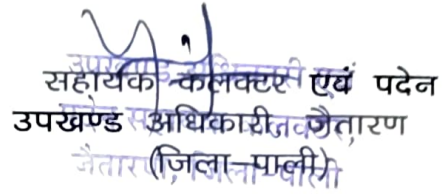 सहायक कलक्टर एवं पदेन
उपखण्ड अधिकारी जैतारण
(जिला-पाली)